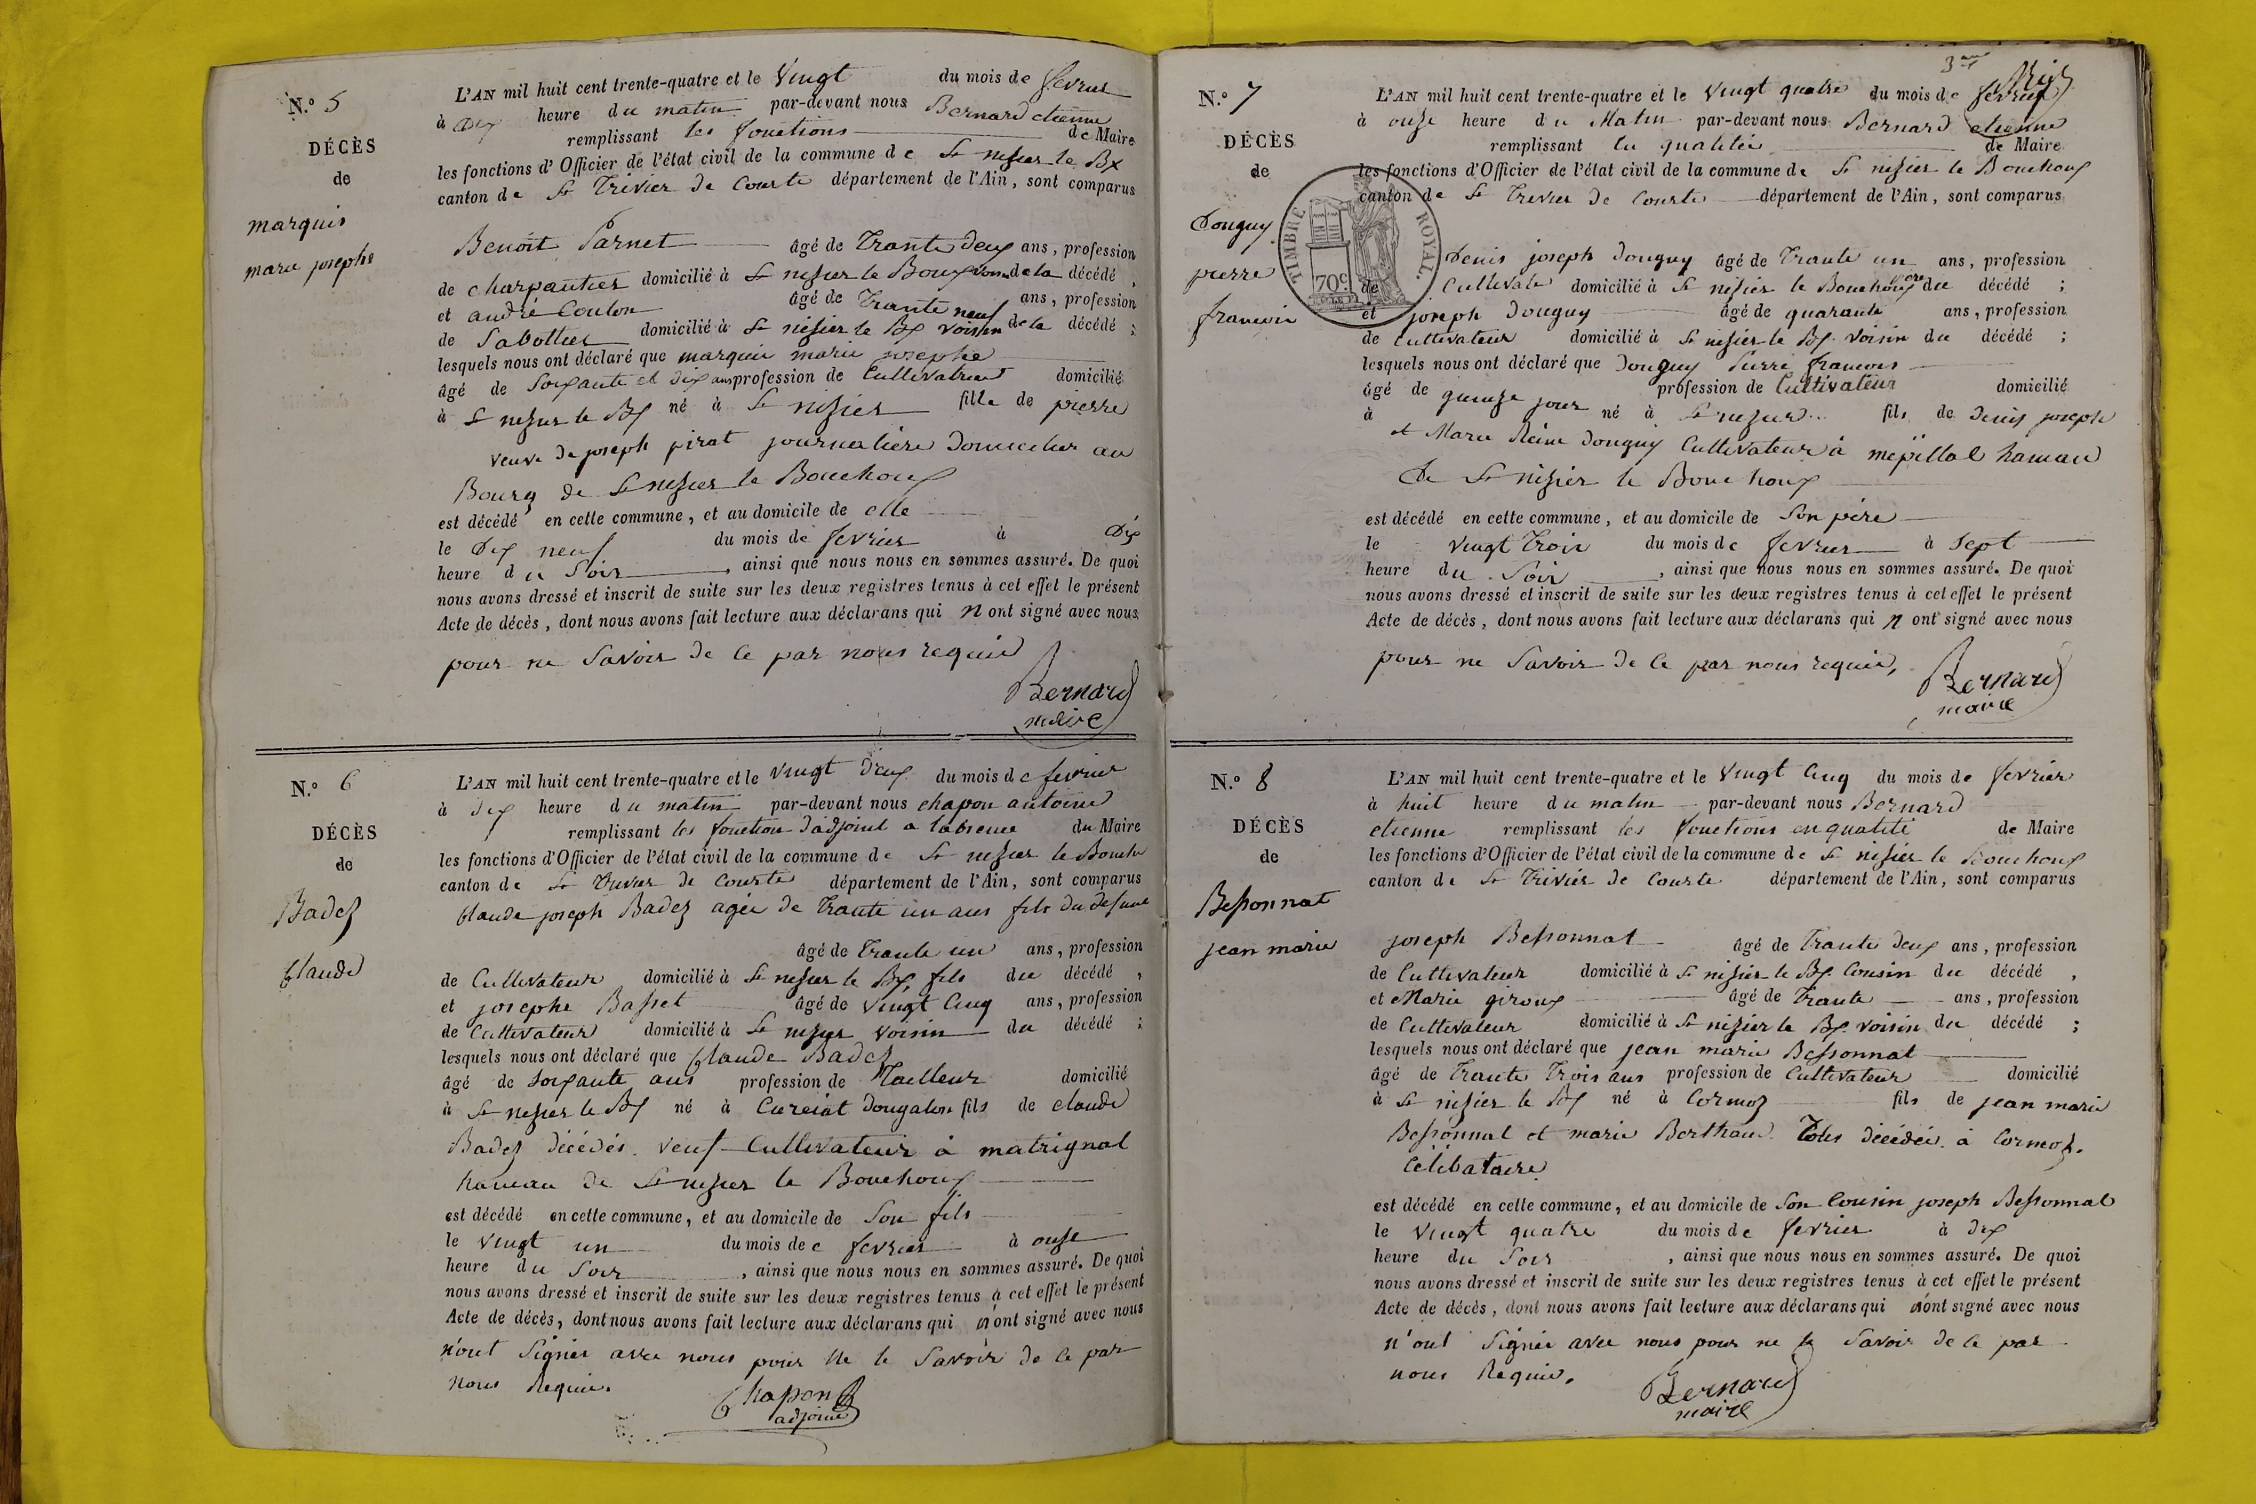 N.° 5
DÉCÈS
de
marquis
marie josephe
L'AN mil huit cent trente-quatre et le vingt du mois de fevrier
à dix heure du matin par-devant nous Bernard etienne
remplissant les fonctions de Maire
les fonctions d'Officier de l'état civil de la commune de St nisier le Bx
canton de St Trivier de Courte département de l'Ain, sont comparus
Benoit Parnet âgé de Trante deux ans, profession
de charpantier domicilié à St nisier le Boux voisin de la décédé,
et andré Coulon âgé de Trante neuf ans, profession
de Sabottier domicilié à St nisier le Bx voisin de la décédé;
lesquels nous ont déclaré que marquis marie josephe
âgé de Soixante et dix ans profession de Cultivatrice domicilié
à St nisier le Bx né à St nisier fille de pierre
veuve de joseph pirat journalière Domicilier au
Bourg de St nisier le Bouchoux
est décédé en cette commune, et au domicile de elle
le Dix neuf du mois de fevrier à Dix
heure du Soir, ainsi que nous nous en sommes assuré. De quoi
nous avons dressé et inscrit de suite sur les deux registres tenus à cet effet le présent
Acte de décès, dont nous avons fait lecture aux déclarans qui n ont signé avec nous
pour ne Savoir de ce par nous requis
Bernard
maire
N.° 6
DÉCÈS
de
Badez
Claude
L'AN mil huit cent trente-quatre et le vingt deux du mois de fevrier
à dix heure du matin par-devant nous chapon antoine
remplissant les fonction d'adjoint a labsence du Maire
les fonctions d'Officier de l'état civil de la commune de St nisier le Bouche
canton de St Trivier de Courte département de l'Ain, sont comparus
Claude joseph Badez agée de Trante un ans fils du defunt
âgé de Trante un ans, profession
de Cultivateur domicilié à St nisier le Bx fils du décédé,
et josephe Basset âgé de vingt Cinq ans, profession
de Cultivateur domicilié à St nisier voisin du décédé;
lesquels nous ont déclaré que Claude Badez
âgé de Soixante ans profession de Tailleur domicilié
à St nisier le Bx né à Curciat Dongalon fils de claude
Badez décédés. veuf Cultivateur à matrignat
hameau de St nisier le Bouchoux
est décédé en cette commune, et au domicile de Son fils
le vingt un du mois de fevrier à onze
heure du Soir, ainsi que nous nous en sommes assuré. De quoi
nous avons dressé et inscrit de suite sur les deux registres tenus à cet effet le présent
Acte de décès, dont nous avons fait lecture aux déclarans qui n'ont signé avec nous
n'ont Signér avec nous pour ne le Savoir de ce par
nous Requis.
Chapon
adjoint
3me
N.° 7
DÉCÈS
de
Douguy
pierre
francois
TIMBRE ROYAL
70c
L'AN mil huit cent trente-quatre et le vingt quatre du mois de fevrier
à onze heure du Matin par-devant nous Bernard etienne
remplissant la qualitée de Maire
les fonctions d'Officier de l'état civil de la commune de St nisier le Bouchoux
canton de St Trivier de Courte département de l'Ain, sont comparus
Denis joseph Douguy âgé de Trante un ans, profession
de Cultivate domicilié à St nisier le Bouchoux père du décédé;
et joseph Douguy âgé de quarante ans, profession
de Cultivateur domicilié à St nisier le Bx voisin du décédé;
lesquels nous ont déclaré que Douguy Pierre francois
âgé de quinze jour profession de Cultivateur domicilié
à né à St nisier fils de Denis joseph
et Marie Reine Douguy Cultivateur à mépillat hamau
De St nisier le Bouchoux
est décédé en cette commune, et au domicile de Son père
le vingt Trois du mois de fevrier à sept
heure du Soir, ainsi que nous nous en sommes assuré. De quoi
nous avons dressé et inscrit de suite sur les deux registres tenus à cet effet le présent
Acte de décès, dont nous avons fait lecture aux déclarans qui n ont signé avec nous
pour ne Savoir de ce par nous requis,
Bernard
maire
N.° 8
DÉCÈS
de
Bessonnat
jean marie
L'AN mil huit cent trente-quatre et le vingt Cinq du mois de fevrier
à huit heure du matin par-devant nous Bernard
etienne remplissant les fonctions en qualité de Maire
les fonctions d'Officier de l'état civil de la commune de St nisier le Bouchoux
canton de St Trivier de Courte département de l'Ain, sont comparus
joseph Bessonnat âgé de Trante Deux ans, profession
de Cultivateur domicilié à St nisier le Bx Cousin du décédé,
et Marie giroux âgé de Trante ans, profession
de Cultivateur domicilié à St nisier le Bx voisin du décédé;
lesquels nous ont déclaré que jean marie Bessonnat
âgé de Trante Trois ans profession de Cultivateur domicilié
à St nisier le Bx né à Cormoz fils de jean marie
Bessonnat et marie Berthaud. Tous décédée. à Cormoz.
Célibataire
est décédé en cette commune, et au domicile de Son Cousin joseph Bessonnat
le vingt quatre du mois de fevrier à dix
heure du Soir, ainsi que nous nous en sommes assuré. De quoi
nous avons dressé et inscrit de suite sur les deux registres tenus à cet effet le présent
Acte de décès, dont nous avons fait lecture aux déclarans qui n'ont signé avec nous
n'ont Signée avec nous pour ne le Savoir de ce par
nous Requis.
Bernard
maire